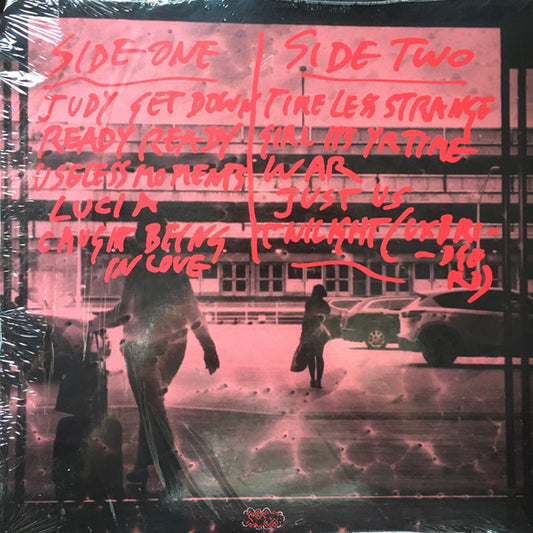 SIDE-ONE
JUDY GET DOWN
READY READY
USELESS MOMENTS
LUCIA
CAUGHT BEING
IN LOVE
SIDE TWO
TIMELESS STRANGE
GIRL ITS YR TIME
WAR
JUST US
TWILIGHT (UXBRI-
-DGE